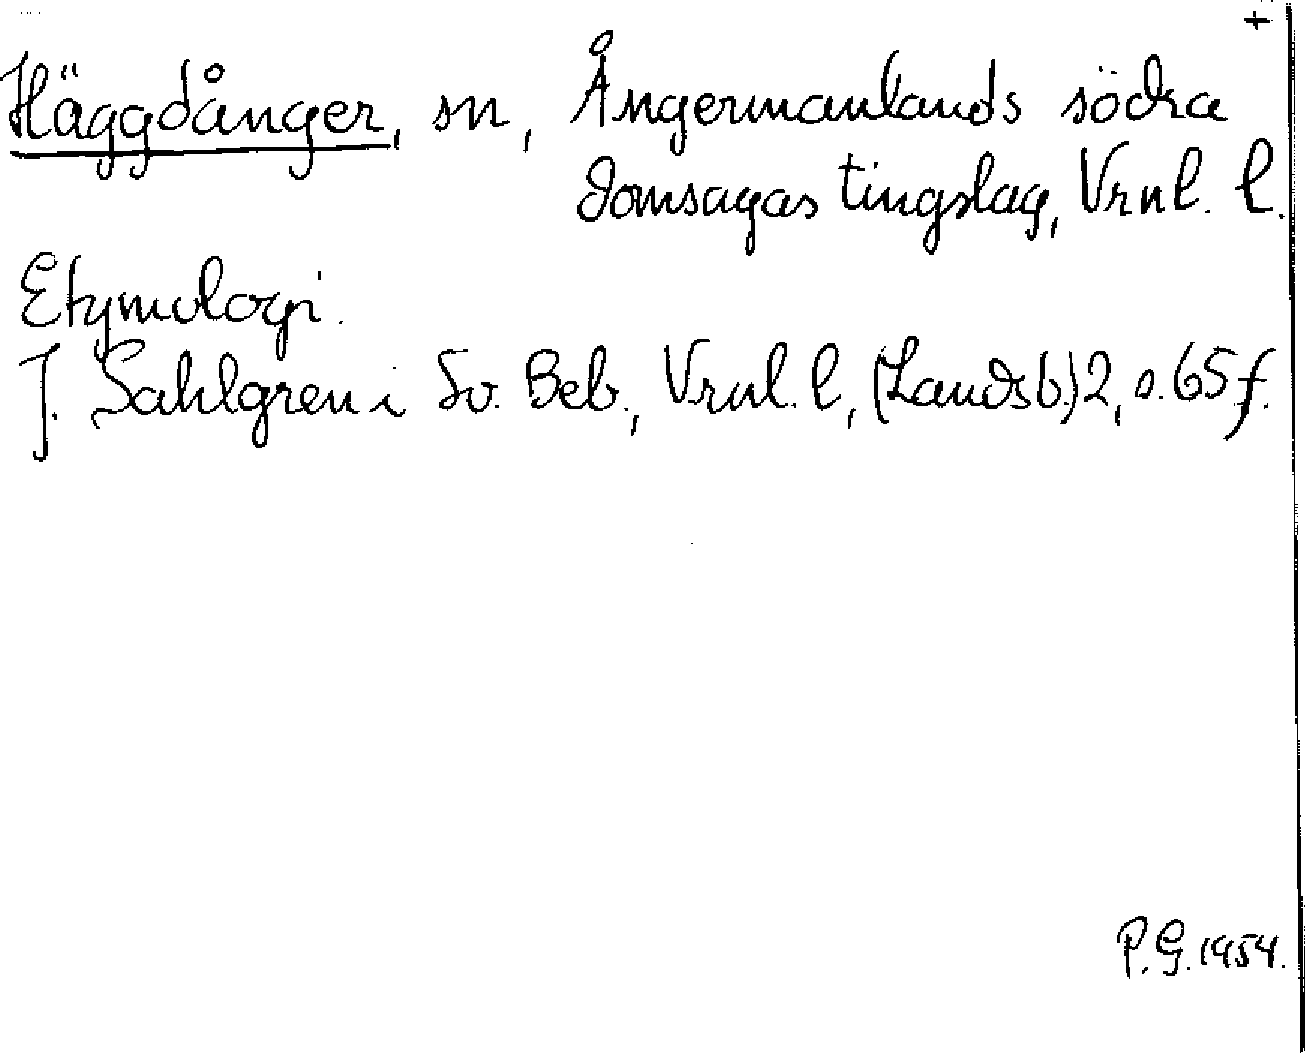 +
Häggdånger, sn, Ångermanlands södra
domsagas tingslag, Vrnl. l.
Etymologi.
J. Sahlgren i Sv. Beb., Vrnl. l, (Landsb.) 2, s. 65 f.
P. G. 1954.